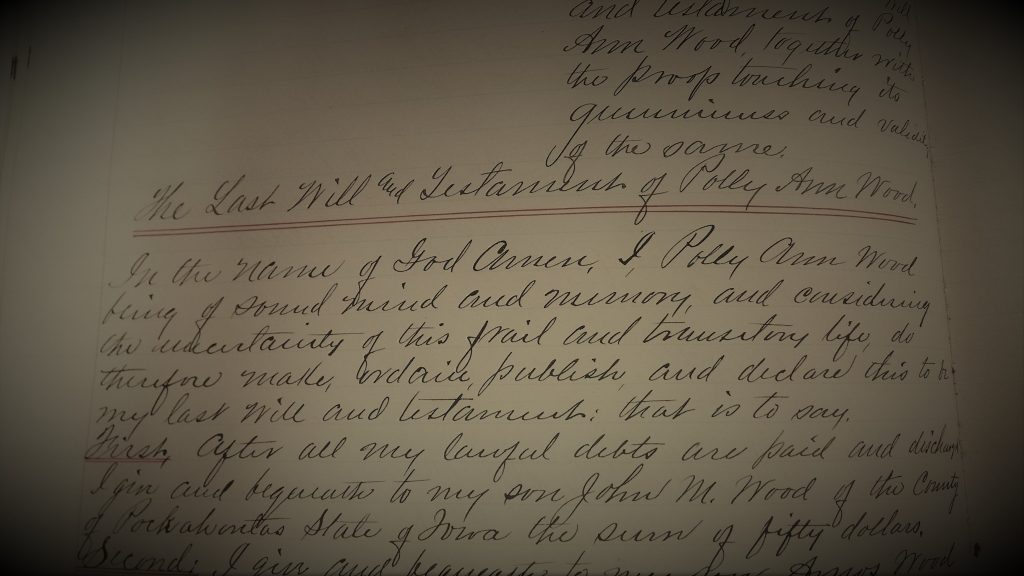 and testament of
Will
Polly
Ann Wood, together with
the proof touching its
genuiniess and validity
of the same.
The Last Will and Testament of Polly Ann Wood.
In the name of God Amen. I, Polly Ann Wood
being of sound mind and memory, and considering
the uncertainty of this frail and transitory life, do
therefore make, ordain, publish, and declare this to be
my last Will and testament: that is to say.
First, After all my lawful debts are paid and discharg
I give and bequeath to my son John M. Wood of the County
of Pockahontas State of Iowa the sum of fifty dollars.
Second: I give and bequeath to my son Amos Wood